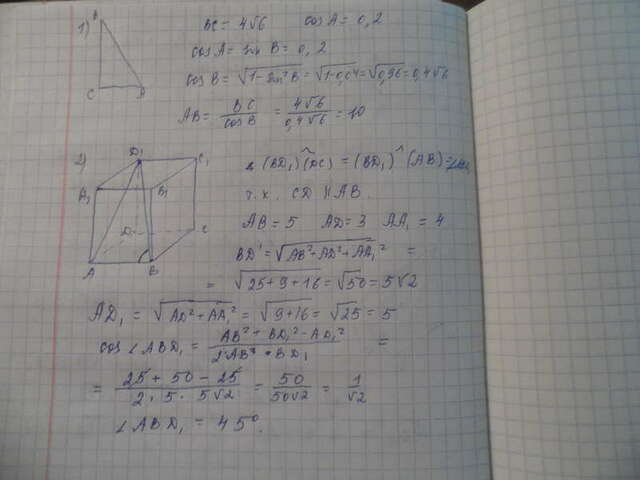 1) B BC = 4√6 cosA = 0,2
cosA = sin B = 0,2
C A cos B = √(1-sin²B) = √(1-0,04) = √0,96 = 0,4√6
AB = BC/cosB = 4√6/0,4√6 = 10
2) D₁ C₁ (BD₁)^(DC) = (BD₁)^(AB) =
A₁ B₁ т.к. CD || AB.
D C AB = 5 AD = 3 AA₁ = 4
A B BD' = √(AB²+AD²+AA₁²) =
= √(25+9+16) = √50 = 5√2
AD₁ = √(AD²+AA₁²) = √(9+16) = √25 = 5
cos ∠ABD₁ = (AB² + BD₁² - AD₁²)/(2 AB · BD₁) =
= (25 + 50 - 25)/(2 · 5 · 5√2) = 50/50√2 = 1/√2
∠ABD₁ = 45°.